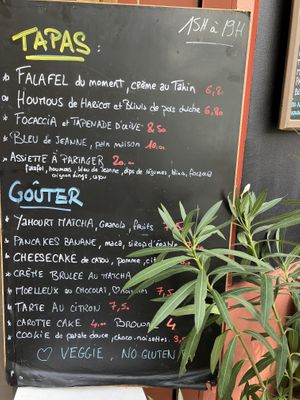 15H à 19H
TAPAS :
FALAFEL du moment, crème au Tahin 6,80
HOUMOUS de HARICOT et Blinis de pois chiche 6,80
FOCACCIA et TAPENADE D'OLIVE 8,50
BLEU de JEANNE, pain maison 10,00
ASSIETTE À PARTAGER 20,00
falafel, houmous, bleu de Jeanne, dips de légumes, blinis, focaccia
GOÛTER
YAHOURT MATCHA, GRANOLA, fruits 7,50
PANCAKES BANANE, maca, sirop d'érable
CHEESECAKE de CAJOU, POMME,
CRÈME BRULEE AU MATCHA
MOELLEUX AU CHOCOLAT, 7,50
TARTE AU CITRON 7,50
CAROTTE CAKE 4,00 BROWNIE 4
COOKIE de patate douce, choco-noisettes. 3,
♡ VEGGIE, NO GLUTEN